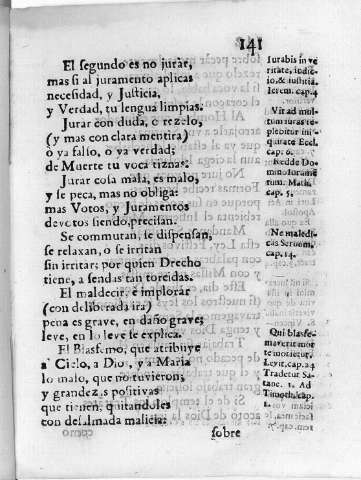 141
El segundo es no jurar,
mas si al juramento aplicas
necesidad, y Justicia,
y Verdad, tu lengua limpias.
Jurar con duda, o rezelo,
(y mas con clara mentira)
ò ya falso, ò ya verdad;
de Muerte tu voca tiznas.
Jurar cosa mala, es malo,
y se peca, mas no obliga:
mas Votos, y Juramentos
devotos siendo, precisan.
Se commutan, se dispensan,
se relaxan, o se irritan
sin irritar; por quien Drecho
tiene, a sendas tan torcidas.
El maldecir, e implorar
(con deliberada ira)
pena es grave, en daño grave;
leve, en lo leve se explica.
El Blasfemo, que atribuye
a Cielo, a Dios, y a Maria
lo malo, que no tuvieron;
y grandezas positivas
que tienen, quitandoles
con desalmada malicia:
como
sobre
Iurabis in ve
ritate, iudic-
io, & iustitia.
Ierem. cap. 4
Vir ad mul-
tum iuras re-
plebitur ini-
quitate Eccl.
cap. 6.
Redde Do-
mino iurame
tum. Math.
cap. 5.
Ne maledi-
cas Servom,
cap. 14.
Qui blasfe-
maverit mor
te morietur.
Levit. cap. 24
Tradetur Sa-
tane. 1. Ad
Timoth. cap.
1.